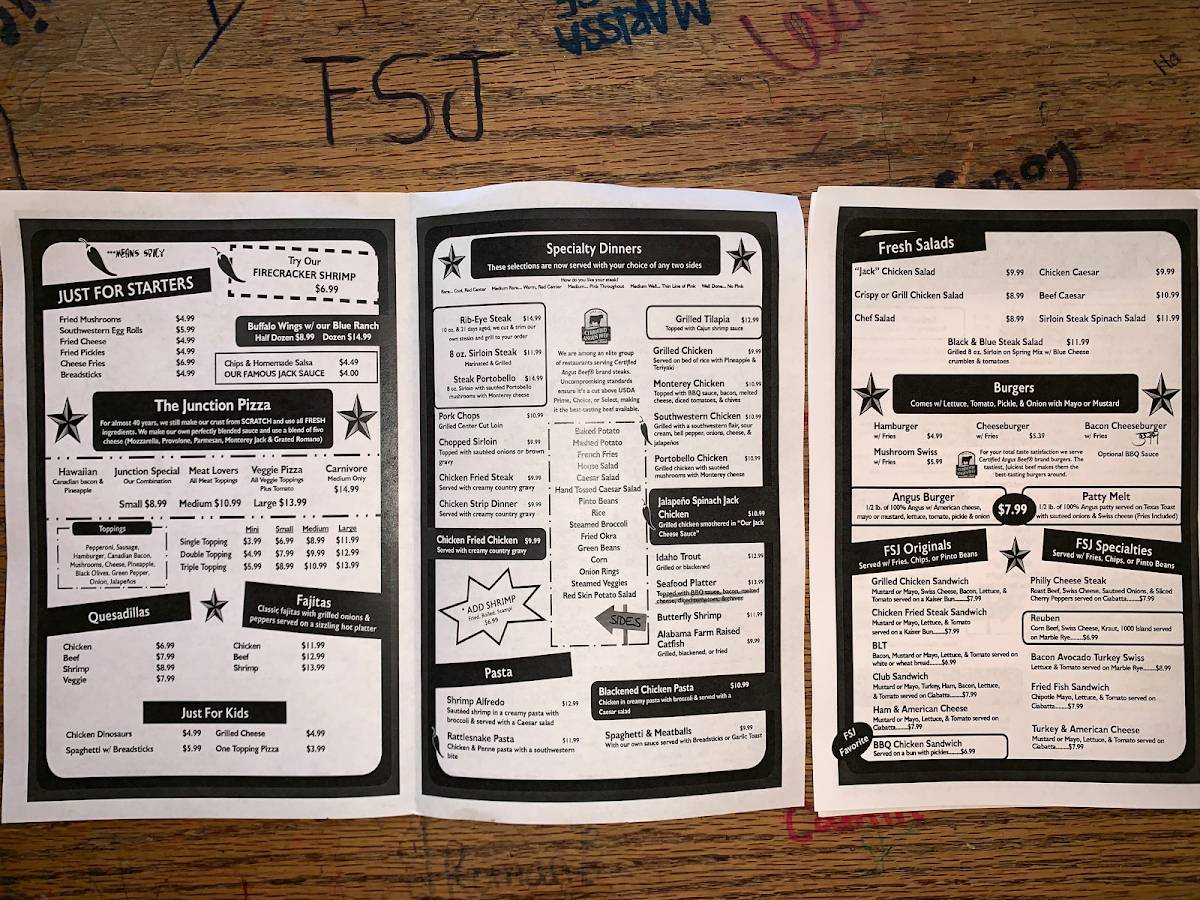 MARISSA
Lexi
FSJ
Ha
***MEANS SPICY
Try Our
FIRECRACKER SHRIMP
$6.99
JUST FOR STARTERS
Fried Mushrooms $4.99
Southwestern Egg Rolls $5.99
Fried Cheese $4.99
Fried Pickles $4.99
Cheese Fries $6.99
Breadsticks $4.99
Buffalo Wings w/ our Blue Ranch
Half Dozen $8.99 Dozen $14.99
Chips & Homemade Salsa $4.49
OUR FAMOUS JACK SAUCE $4.00
The Junction Pizza
For almost 40 years, we still make our crust from SCRATCH and use all FRESH
ingredients. We make our own perfectly blended sauce and use a blend of five
cheese (Mozzarella, Provolone, Parmesan, Monterey Jack & Grated Romano)
Hawaiian
Canadian bacon &
Pineapple
Junction Special
Our Combination
Meat Lovers
All Meat Toppings
Veggie Pizza
All Veggie Toppings
Plus Tomato
Carnivore
Medium Only
$14.99
Small $8.99 Medium $10.99 Large $13.99
Toppings
Pepperoni, Sausage,
Hamburger, Canadian Bacon,
Mushrooms, Cheese, Pineapple,
Black Olives, Green Pepper,
Onion, Jalapeños
Mini Small Medium Large
Single Topping $3.99 $6.99 $8.99 $11.99
Double Topping $4.99 $7.99 $9.99 $12.99
Triple Topping $5.99 $8.99 $10.99 $13.99
Quesadillas
Chicken $6.99
Beef $7.99
Shrimp $8.99
Veggie $7.99
Fajitas
Classic fajitas with grilled onions &
peppers served on a sizzling hot platter
Chicken $11.99
Beef $12.99
Shrimp $13.99
Just For Kids
Chicken Dinosaurs $4.99 Grilled Cheese $4.99
Spaghetti w/ Breadsticks $5.99 One Topping Pizza $3.99
Specialty Dinners
These selections are now served with your choice of any two sides
How do you like your steak?
Rare... Cool, Red Center Medium Rare... Warm, Red Center Medium... Pink Throughout Medium Well... Thin Line of Pink Well Done... No Pink
Rib-Eye Steak $14.99
10 oz. & 21 days aged, we cut & trim our
own steaks and grill to your order
8 oz. Sirloin Steak $11.99
Marinated & Grilled
Steak Portobello $14.99
8 oz. Sirloin with sautéed Portobello
mushrooms with Monterey cheese
Pork Chops $10.99
Grilled Center Cut Loin
Chopped Sirloin $9.99
Topped with sautéed onions or brown
gravy
Chicken Fried Steak $9.99
Served with creamy country gravy
Chicken Strip Dinner $9.99
Served with creamy country gravy
Chicken Fried Chicken $9.99
Served with creamy country gravy
* ADD SHRIMP
Fried, Boiled, Scampi
$6.99
CERTIFIED
ANGUS BEEF
We are among an elite group
of restaurants serving Certified
Angus Beef® brand steaks.
Uncompromising standards
ensure it's a cut above USDA
Prime, Choice, or Select, making
it the best-tasting beef available.
Baked Potato
Mashed Potato
French Fries
House Salad
Caesar Salad
Hand Tossed Caesar Salad
Pinto Beans
Rice
Steamed Broccoli
Fried Okra
Green Beans
Corn
Onion Rings
Steamed Veggies
Red Skin Potato Salad
SIDES
Grilled Tilapia $12.99
Topped with Cajun shrimp sauce
Grilled Chicken $9.99
Served on bed of rice with Pineapple &
Teriyaki
Monterey Chicken $10.99
Topped with BBQ sauce, bacon, melted
cheese, diced tomatoes, & chives
Southwestern Chicken $10.99
Grilled with a southwestern flair, sour
cream, bell pepper, onions, cheese, &
jalapeños
Portobello Chicken $10.99
Grilled chicken with sautéed
mushrooms with Monterey
Jalapeño Spinach Jack
Chicken $10.99
Grilled chicken smothered in "Our Jack
Cheese Sauce"
Idaho Trout $12.99
Grilled or blackened
Seafood Platter $13.99
Topped with BBQ sauce, bacon, melted
cheese, diced tomatoes, & chives
Butterfly Shrimp $11.99
Alabama Farm Raised
Catfish $9.99
Grilled, blackened, or fried
Pasta
Shrimp Alfredo $12.99
Sautéed shrimp in a creamy pasta with
broccoli & served with a Caesar salad
Rattlesnake Pasta $11.99
Chicken & Penne pasta with a southwestern
bite
Blackened Chicken Pasta $10.99
Chicken in creamy pasta with broccoli & served with a
Caesar salad
Spaghetti & Meatballs $9.99
With our own sauce served with Breadsticks or Garlic Toast
Fresh Salads
"Jack" Chicken Salad $9.99 Chicken Caesar $9.99
Crispy or Grill Chicken Salad $8.99 Beef Caesar $10.99
Chef Salad $8.99 Sirloin Steak Spinach Salad $11.99
Black & Blue Steak Salad $11.99
Grilled 8 oz. Sirloin on Spring Mix w/ Blue Cheese
crumbles & tomatoes
Burgers
Comes w/ Lettuce, Tomato, Pickle, & Onion with Mayo or Mustard
Hamburger
w/ Fries $4.99
Cheeseburger
w/ Fries $5.39
Bacon Cheeseburger
w/ Fries
Mushroom Swiss
w/ Fries $5.99
For your total taste satisfaction we serve
Certified Angus Beef® brand burgers. The
tastiest, juiciest beef makes them the
best-tasting burgers around.
Optional BBQ Sauce
Angus Burger
1/2 lb. of 100% Angus w/ American cheese,
mayo or mustard, lettuce, tomato, pickle & onion
$7.99
Patty Melt
1/2 lb. of 100% Angus patty served on Texas Toast
with sauteed onions & Swiss cheese (Fries Included)
FSJ Originals
Served w/ Fries, Chips, or Pinto Beans
Grilled Chicken Sandwich
Mustard or Mayo, Swiss Cheese, Bacon, Lettuce, &
Tomato served on a Kaiser Bun......$7.99
Chicken Fried Steak Sandwich
Mustard or Mayo, Lettuce, & Tomato
served on a Kaiser Bun......$7.99
BLT
Bacon, Mustard or Mayo, Lettuce, & Tomato served on
white or wheat bread......$6.99
Club Sandwich
Mustard or Mayo, Turkey, Ham, Bacon, Lettuce,
& Tomato served on Ciabatta......$7.99
Ham & American Cheese
Mustard or Mayo, Lettuce, & Tomato served on
Ciabatta......$7.99
FSJ
Favorite
BBQ Chicken Sandwich
Served on a bun with pickles......$6.99
FSJ Specialties
Served w/ Fries, Chips, or Pinto Beans
Philly Cheese Steak
Roast Beef, Swiss Cheese, Sauteed Onions, & Sliced
Cherry Peppers served on Ciabatta......$7.99
Reuben
Corn Beef, Swiss Cheese, Kraut, 1000 Island served
on Marble Rye......$6.99
Bacon Avocado Turkey Swiss
Lettuce & Tomato served on Marble Rye......$8.99
Fried Fish Sandwich
Chipotle Mayo, Lettuce, & Tomato served on
Ciabatta......$7.99
Turkey & American Cheese
Mustard or Mayo, Lettuce, & Tomato served on
Ciabatta......$7.99